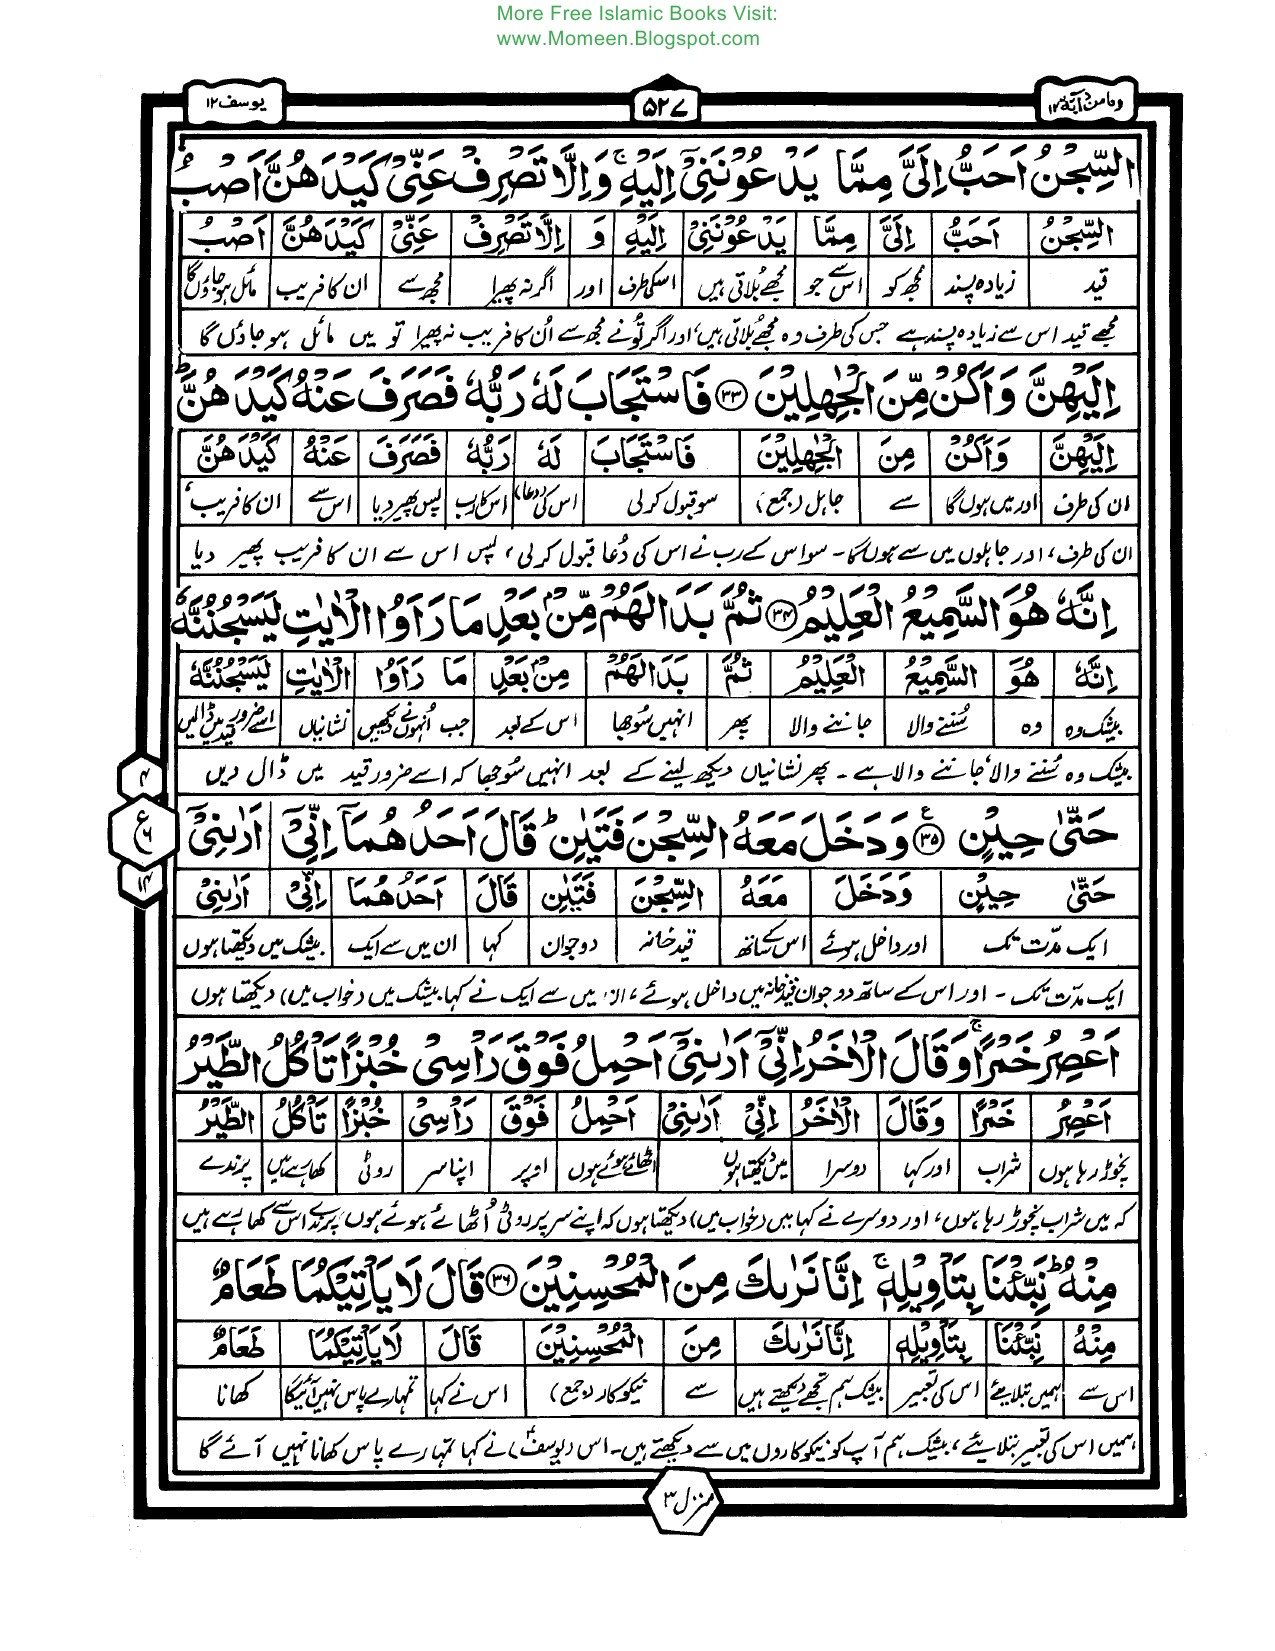 More Free Islamic Books Visit:
www.Momeen.Blogspot.com
وما من دآبة ١٢
٥٢٧
یوسف ١٢
السِّجْنُ اَحَبُّ اِلَیَّ مِمَّا یَدْعُوْنَنِیْۤ اِلَیْهِ ۚ وَ اِلَّا تَصْرِفْ عَنِّیْ كَیْدَهُنَّ اَصْبُ
السِّجْنُ اَحَبُّ اِلَیَّ مِمَّا یَدْعُوْنَنِیْۤ اِلَیْهِ وَ اِلَّا تَصْرِفْ عَنِّیْ كَیْدَهُنَّ اَصْبُ
قید زیادہ پسند مجھ کو اس سے جو مجھے بُلاتی ہیں اسکی طرف اور اگر نہ پھیرا مجھ سے ان کا فریب مائل ہو جاؤں گا
مجھے قید اس سے زیادہ پسند ہے جس کی طرف وہ مجھے بُلاتی ہیں، اور اگر تُو نے مجھ سے اُن کا فریب نہ پھیرا تو میں مائل ہو جاؤں گا
اِلَیْهِنَّ وَ اَكُنْ مِّنَ الْجٰهِلِیْنَ ٣٣ فَاسْتَجَابَ لَهٗ رَبُّهٗ فَصَرَفَ عَنْهُ كَیْدَهُنَّ ؕ
اِلَیْهِنَّ وَاَكُنْ مِنَ الْجٰهِلِیْنَ فَاسْتَجَابَ لَهٗ رَبُّهٗ فَصَرَفَ عَنْهُ كَیْدَهُنَّ
ان کی طرف اور میں ہوں گا سے جاہل (جمع) سو قبول کر لی اس کی (دعا) اس کا رب پس پھیر دیا اس سے ان کا فریب
ان کی طرف، اور جاہلوں میں سے ہوں گا۔ سو اس کے رب نے اس کی دُعا قبول کر لی، پس اس سے ان کا فریب پھیر دیا
اِنَّهٗ هُوَ السَّمِیْعُ الْعَلِیْمُ ٣٤ ثُمَّ بَدَا لَهُمْ مِّنْۢ بَعْدِ مَا رَاَوُا الْاٰیٰتِ لَیَسْجُنُنَّهٗ
اِنَّهٗ هُوَ السَّمِیْعُ الْعَلِیْمُ ثُمَّ بَدَا لَهُمْ مِنْۢ بَعْدِ مَا رَاَوُا الْاٰیٰتِ لَیَسْجُنُنَّهٗ
بیشک وہ وہ سُننے والا جاننے والا پھر انہیں سُوجھا اس کے بعد جب انہوں نے دیکھیں نشانیاں اسے ضرور قید میں ڈالیں
بیشک وہ سُننے والا، جاننے والا ہے۔ پھر نشانیاں دیکھ لینے کے بعد انہیں سُوجھا کہ اسے ضرور قید میں ڈال دیں
٤
ع
٦
١٤
حَتّٰى حِیْنٍ ٣٥ وَ دَخَلَ مَعَهُ السِّجْنَ فَتَیٰنِ ؕ قَالَ اَحَدُهُمَاۤ اِنِّیْۤ اَرٰىنِیْۤ
حَتّٰى حِیْنٍ وَدَخَلَ مَعَهُ السِّجْنَ فَتَیٰنِ قَالَ اَحَدُهُمَا اِنِّیْ اَرٰىنِیْ
ایک مدّت تک اور داخل ہوئے اس کے ساتھ قید خانہ دو جوان کہا ان میں سے ایک بیشک میں دیکھتا ہوں
ایک مدّت تک۔ اور اس کے ساتھ دو جوان قید خانہ میں داخل ہوئے، ان میں سے ایک نے کہا بیشک میں (خواب میں) دیکھتا ہوں
اَعْصِرُ خَمْرًا ۚ وَ قَالَ الْاٰخَرُ اِنِّیْۤ اَرٰىنِیْۤ اَحْمِلُ فَوْقَ رَاْسِیْ خُبْزًا تَاْكُلُ الطَّیْرُ
اَعْصِرُ خَمْرًا وَقَالَ الْاٰخَرُ اِنِّیْ اَرٰىنِیْ اَحْمِلُ فَوْقَ رَاْسِیْ خُبْزًا تَاْكُلُ الطَّیْرُ
نچوڑ رہا ہوں شراب اور کہا دوسرا میں دیکھتا ہوں اٹھائے ہوئے ہوں اوپر اپنا سر روٹی کھا رہے ہیں پرندے
کہ میں شراب نچوڑ رہا ہوں، اور دوسرے نے کہا میں (خواب میں) دیکھتا ہوں کہ اپنے سر پر روٹی اُٹھائے ہوئے ہوں، پرندے اس سے کھا رہے ہیں
مِنْهُ ؕ نَبِّئْنَا بِتَاْوِیْلِهٖ ۚ اِنَّا نَرٰىكَ مِنَ الْمُحْسِنِیْنَ ٣٦ قَالَ لَا یَاْتِیْكُمَا طَعَامٌ
مِنْهُ نَبِّئْنَا بِتَاْوِیْلِهٖ اِنَّا نَرٰىكَ مِنَ الْمُحْسِنِیْنَ قَالَ لَا یَاْتِیْكُمَا طَعَامٌ
اس سے ہمیں بتلائیے اس کی تعبیر بیشک ہم تجھے دیکھتے ہیں سے نیکوکار (جمع) اس نے کہا تمہارے پاس نہیں آئیگا کھانا
ہمیں اس کی تعبیر بتلائیے، بیشک ہم آپ کو نیکوکاروں میں سے دیکھتے ہیں۔ اس (یوسفؑ) نے کہا تمہارے پاس کھانا نہیں آئے گا
منزل ٣